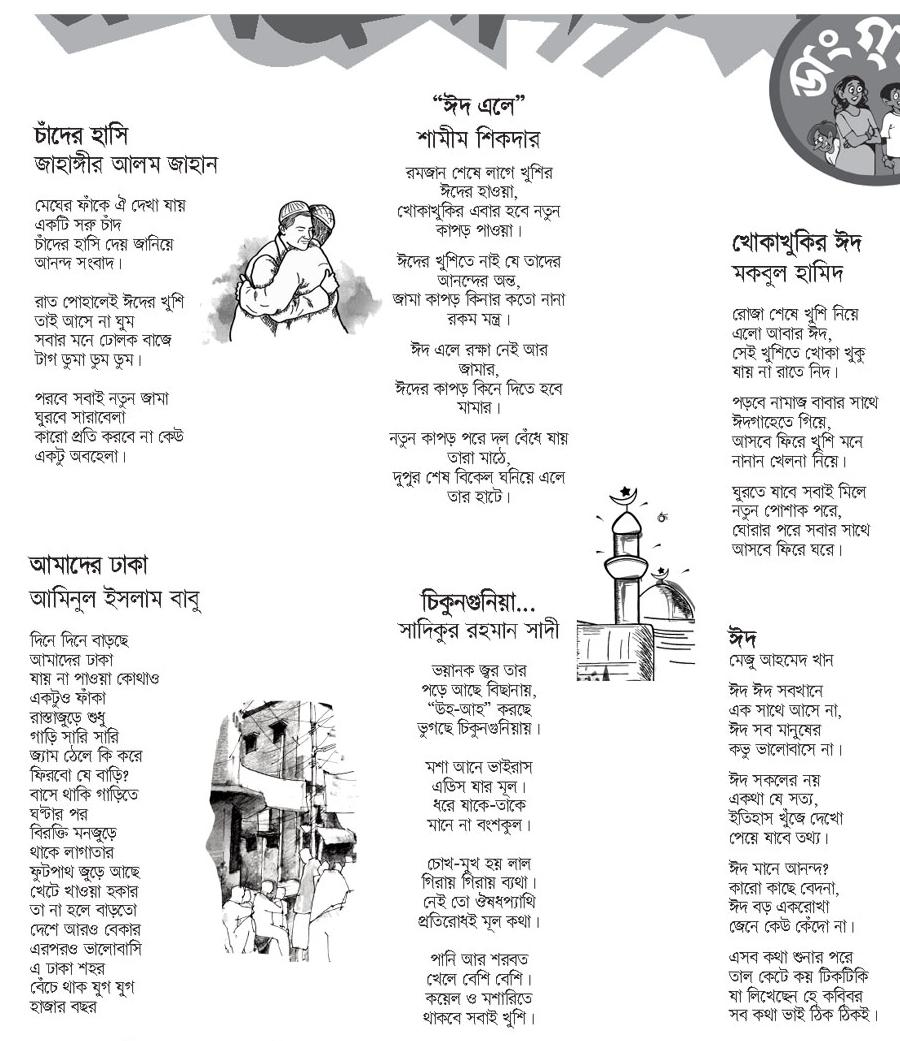 চাঁদের হাসি
জাহাঙ্গীর আলম জাহান
মেঘের ফাঁকে ঐ দেখা যায়
একটি সরু চাঁদ
চাঁদের হাসি দেয় জানিয়ে
আনন্দ সংবাদ।
রাত পোহালেই ঈদের খুশি
তাই আসে না ঘুম
সবার মনে ঢোলক বাজে
টাগ ডুমা ডুম ডুম।
পরবে সবাই নতুন জামা
ঘুরবে সারাবেলা
কারো প্রতি করবে না কেউ
একটু অবহেলা।
আমাদের ঢাকা
আমিনুল ইসলাম বাবু
দিনে দিনে বাড়ছে
আমাদের ঢাকা
যায় না পাওয়া কোথাও
একটুও ফাঁকা
রাস্তাজুড়ে শুধু
গাড়ি সারি সারি
জ্যাম ঠেলে কি করে
ফিরবো যে বাড়ি?
বাসে থাকি গাড়িতে
ঘণ্টার পর
বিরক্তি মনজুড়ে
থাকে লাগাতার
ফুটপাথ জুড়ে আছে
খেটে খাওয়া হকার
তা না হলে বাড়তো
দেশে আরও বেকার
এরপরও ভালোবাসি
এ ঢাকা শহর
বেঁচে থাক যুগ যুগ
হাজার বছর
“ঈদ এলে”
শামীম শিকদার
রমজান শেষে লাগে খুশির
ঈদের হাওয়া,
খোকাখুকির এবার হবে নতুন
কাপড় পাওয়া।
ঈদের খুশিতে নাই যে তাদের
আনন্দের অন্ত,
জামা কাপড় কিনার কতো নানা
রকম মন্ত্র।
ঈদ এলে রক্ষা নেই আর
জামার,
ঈদের কাপড় কিনে দিতে হবে
মামার।
নতুন কাপড় পরে দল বেঁধে যায়
তারা মাঠে,
দুপুর শেষ বিকেল ঘনিয়ে এলে
তার হাটে।
চিকুনগুনিয়া...
সাদিকুর রহমান সাদী
ভয়ানক জ্বর তার
পড়ে আছে বিছানায়,
“উহ-আহ” করছে
ভুগছে চিকুনগুনিয়ায়।
মশা আনে ভাইরাস
এডিস যার মূল।
ধরে যাকে-তাকে
মানে না বংশকুল।
চোখ-মুখ হয় লাল
গিরায় গিরায় ব্যথা।
নেই তো ঔষধপ্যাথি
প্রতিরোধই মূল কথা।
পানি আর শরবত
খেলে বেশি বেশি।
কয়েল ও মশারিতে
থাকবে সবাই খুশি।
খোকাখুকির ঈদ
মকবুল হামিদ
রোজা শেষে খুশি নিয়ে
এলো আবার ঈদ,
সেই খুশিতে খোকা খুকু
যায় না রাতে নিদ।
পড়বে নামাজ বাবার সাথে
ঈদগাহেতে গিয়ে,
আসবে ফিরে খুশি মনে
নানান খেলনা নিয়ে।
ঘুরতে যাবে সবাই মিলে
নতুন পোশাক পরে,
ঘোরার পরে সবার সাথে
আসবে ফিরে ঘরে।
ঈদ
মেজু আহমেদ খান
ঈদ ঈদ সবখানে
এক সাথে আসে না,
ঈদ সব মানুষের
কভু ভালোবাসে না।
ঈদ সকলের নয়
একথা যে সত্য,
ইতিহাস খুঁজে দেখো
পেয়ে যাবে তথ্য।
ঈদ মানে আনন্দ?
কারো কাছে বেদনা,
ঈদ বড় একরোখা
জেনে কেউ কেঁদো না।
এসব কথা শুনার পরে
তাল কেটে কয় টিকটিকি
যা লিখেছেন হে কবিবর
সব কথা ভাই ঠিক ঠিকই।